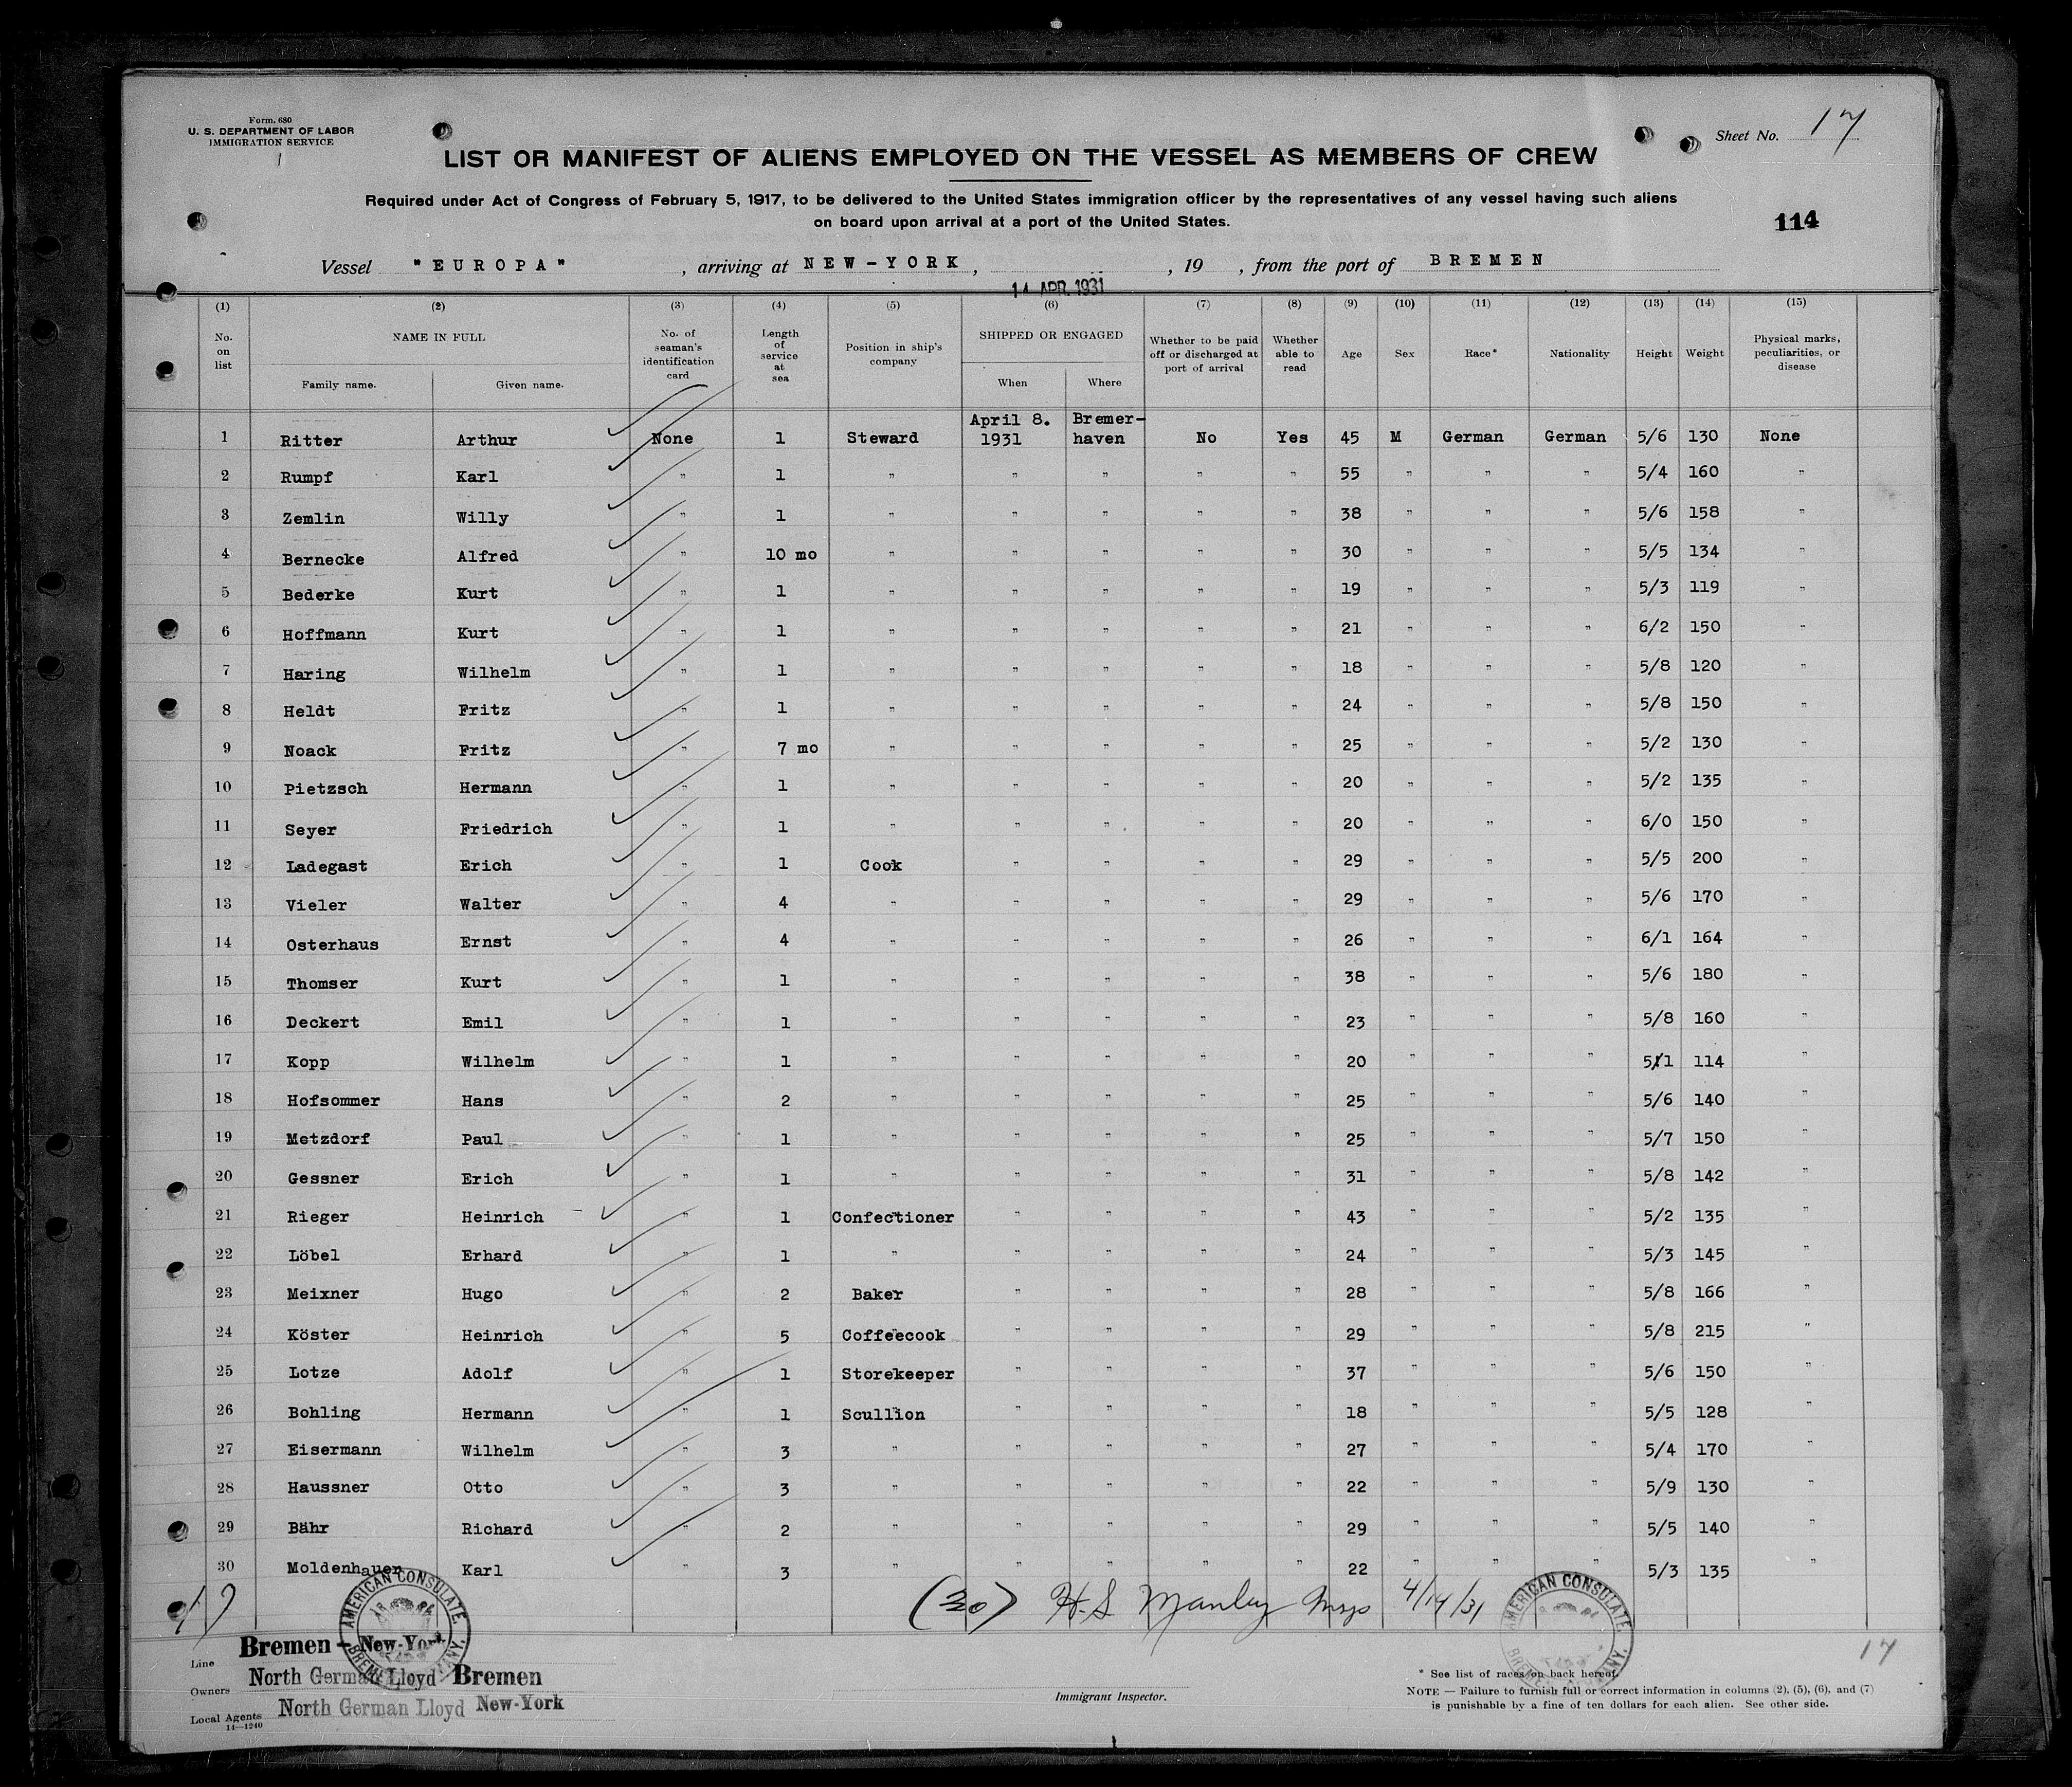 Form. 680
U. S. DEPARTMENT OF LABOR
IMMIGRATION SERVICE
Sheet No. 17
LIST OR MANIFEST OF ALIENS EMPLOYED ON THE VESSEL AS MEMBERS OF CREW
Required under Act of Congress of February 5, 1917, to be delivered to the United States immigration officer by the representatives of any vessel having such aliens
on board upon arrival at a port of the United States.
114
Vessel "EUROPA", arriving at NEW-YORK, , 19 , from the port of BREMEN
14 APR. 1931
(1) (2) (3) (4) (5) (6) (7) (8) (9) (10) (11) (12) (13) (14) (15)
No. on list NAME IN FULL Family name. Given name. No. of seaman's identification card Length of service at sea Position in ship's company SHIPPED OR ENGAGED When Where Whether to be paid off or discharged at port of arrival Whether able to read Age Sex Race* Nationality Height Weight Physical marks, peculiarities, or disease
1 Ritter Arthur None 1 Steward April 8. 1931 Bremer-haven No Yes 45 M German German 5/6 130 None
2 Rumpf Karl " 1 " " " " " 55 " " " 5/4 160 "
3 Zemlin Willy " 1 " " " " " 38 " " " 5/6 158 "
4 Bernecke Alfred " 10 mo " " " " " 30 " " " 5/5 134 "
5 Bederke Kurt " 1 " " " " " 19 " " " 5/3 119 "
6 Hoffmann Kurt " 1 " " " " " 21 " " " 6/2 150 "
7 Haring Wilhelm " 1 " " " " " 18 " " " 5/8 120 "
8 Heldt Fritz " 1 " " " " " 24 " " " 5/8 150 "
9 Noack Fritz " 7 mo " " " " " 25 " " " 5/2 130 "
10 Pietzsch Hermann " 1 " " " " " 20 " " " 5/2 135 "
11 Seyer Friedrich " 1 " " " " " 20 " " " 6/0 150 "
12 Ladegast Erich " 1 Cook " " " " 29 " " " 5/5 200 "
13 Vieler Walter " 4 " " " " " 29 " " " 5/6 170 "
14 Osterhaus Ernst " 4 " " " " " 26 " " " 6/1 164 "
15 Thomser Kurt " 1 " " " " " 38 " " " 5/6 180 "
16 Deckert Emil " 1 " " " " " 23 " " " 5/8 160 "
17 Kopp Wilhelm " 1 " " " " " 20 " " " 5/1 114 "
18 Hofsommer Hans " 2 " " " " " 25 " " " 5/6 140 "
19 Metzdorf Paul " 1 " " " " " 25 " " " 5/7 150 "
20 Gessner Erich " 1 " " " " " 31 " " " 5/8 142 "
21 Rieger Heinrich " 1 Confectioner " " " " 43 " " " 5/2 135 "
22 Löbel Erhard " 1 " " " " " 24 " " " 5/3 145 "
23 Meixner Hugo " 2 Baker " " " " 28 " " " 5/8 166 "
24 Köster Heinrich " 5 Coffeecook " " " " 29 " " " 5/8 215 "
25 Lotze Adolf " 1 Storekeeper " " " " 37 " " " 5/6 150 "
26 Bohling Hermann " 1 Scullion " " " " 18 " " " 5/5 128 "
27 Eisermann Wilhelm " 3 " " " " " 27 " " " 5/4 170 "
28 Haussner Otto " 3 " " " " " 22 " " " 5/9 130 "
29 Bähr Richard " 2 " " " " " 29 " " " 5/5 140 "
30 Moldenhauer Karl " 3 " " " " " 22 " " " 5/3 135 "
17 (30) H. S. Manley 4/14/31
AMERICAN CONSULATE, BREMEN, GERMANY.
AMERICAN CONSULATE,
17
Line Bremen - New-York
Owners North German Lloyd Bremen
Local Agents North German Lloyd New-York
14—1240
Immigrant Inspector.
* See list of races on back hereof.
NOTE — Failure to furnish full or correct information in columns (2), (5), (6), and (7)
is punishable by a fine of ten dollars for each alien. See other side.